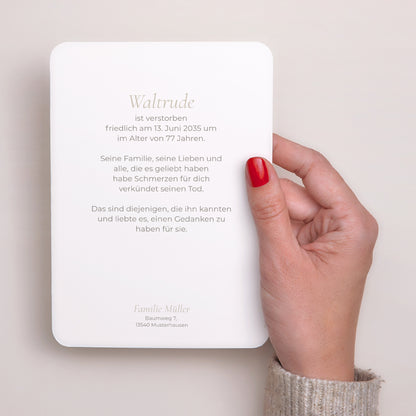 Waltrude
ist verstorben
friedlich am 13. Juni 2035 um
im Alter von 77 Jahren.
Seine Familie, seine Lieben und
alle, die es geliebt haben
habe Schmerzen für dich
verkündet seinen Tod.
Das sind diejenigen, die ihn kannten
und liebte es, einen Gedanken zu
haben für sie.
Familie Müller
Baumweg 7,
13540 Musterhausen